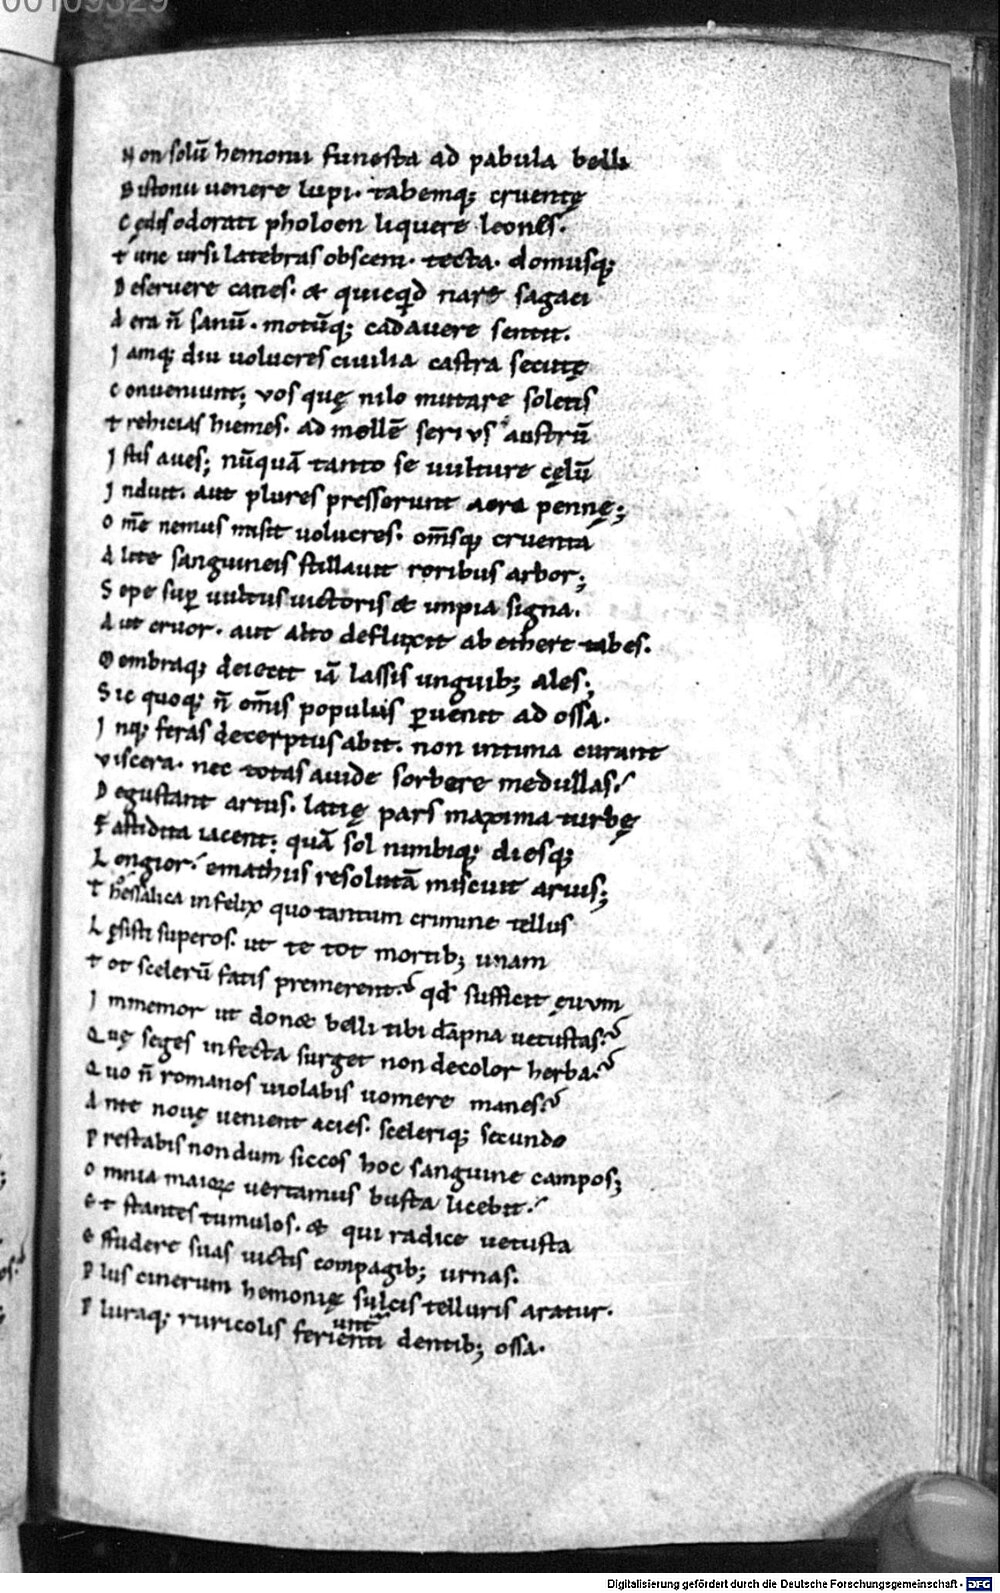 00109329
Non solũ hemonii funesta ad pabula belli
Bistonii uenere lupi. tabemq; cruentę
Cędis odorati pholoen liquere leones.
Tunc ursi latebras obsceni. tecta. domusq;
Deseruere canes. & quicq͛d nare sagaci
Aera ñ sanũ. motũq; cadauere sentit.
Iamq; diu uolucres ciuilia castra secutę
Conueniunt; vos quę nilo mutare soletis
Trehicias hiemes. ad mollẽ serius austrũ
Istis aues; nũquã tanto se uulture cęlũ
Induit. aut plures presserunt aera pennę;
Om̃e nemus misit uolucres. om̃sq; cruenta
Alite sanguineis stillauit roribus arbor;
Sepe suꝑ uultus uictoris & impia signa.
Aut cruor. aut alto defluxit ab ethere tabes.
Membraq; deiecit iã lassis unguib; ales;
Sic quoq; ñ om̃is populus ꝑuenit ad ossa.
Inq; feras decerptus abit. non intima curant
Viscera. nec totas auide sorbere medullas.
Degustant artus. latię pars maxima turbę
Fastidita iacent; quã sol nimbiq; diesq;
Longior. emathiis resolutã miscuit aruis;
Thessalica infelix quo tantum crimine tellus
Lęsisti superos. ut te tot mortib; unam
Tot scelerũ fatis premerent. qđ sufficit ęuum
Immemor ut donet belli tibi dãpna uetustas.
Quę seges infecta surget non decolor herba.
Quo ñ romanos uiolabis uomere manes.
Ante nouę uenient acies. sceleriq; secundo
Prestabis nondum siccos hoc sanguine campos;
Omnia maioꝝ uertamus busta licebit.
Et stantes tumulos. & qui radice uetusta
Effudere suas uictis compagib; urnas.
Plus cinerum hemonię sulcis telluris aratur.
unt
Pluraq; ruricolis ferienti dentib; ossa.
Digitalisierung gefördert durch die Deutsche Forschungsgemeinschaft - DFG